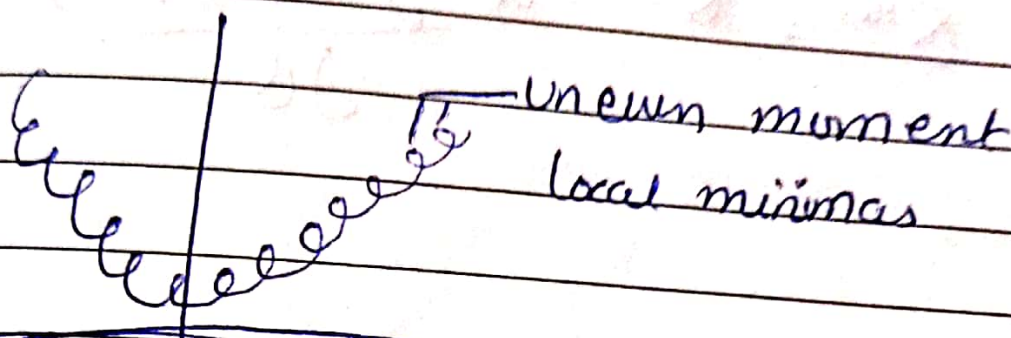 uneven moment
local minimas